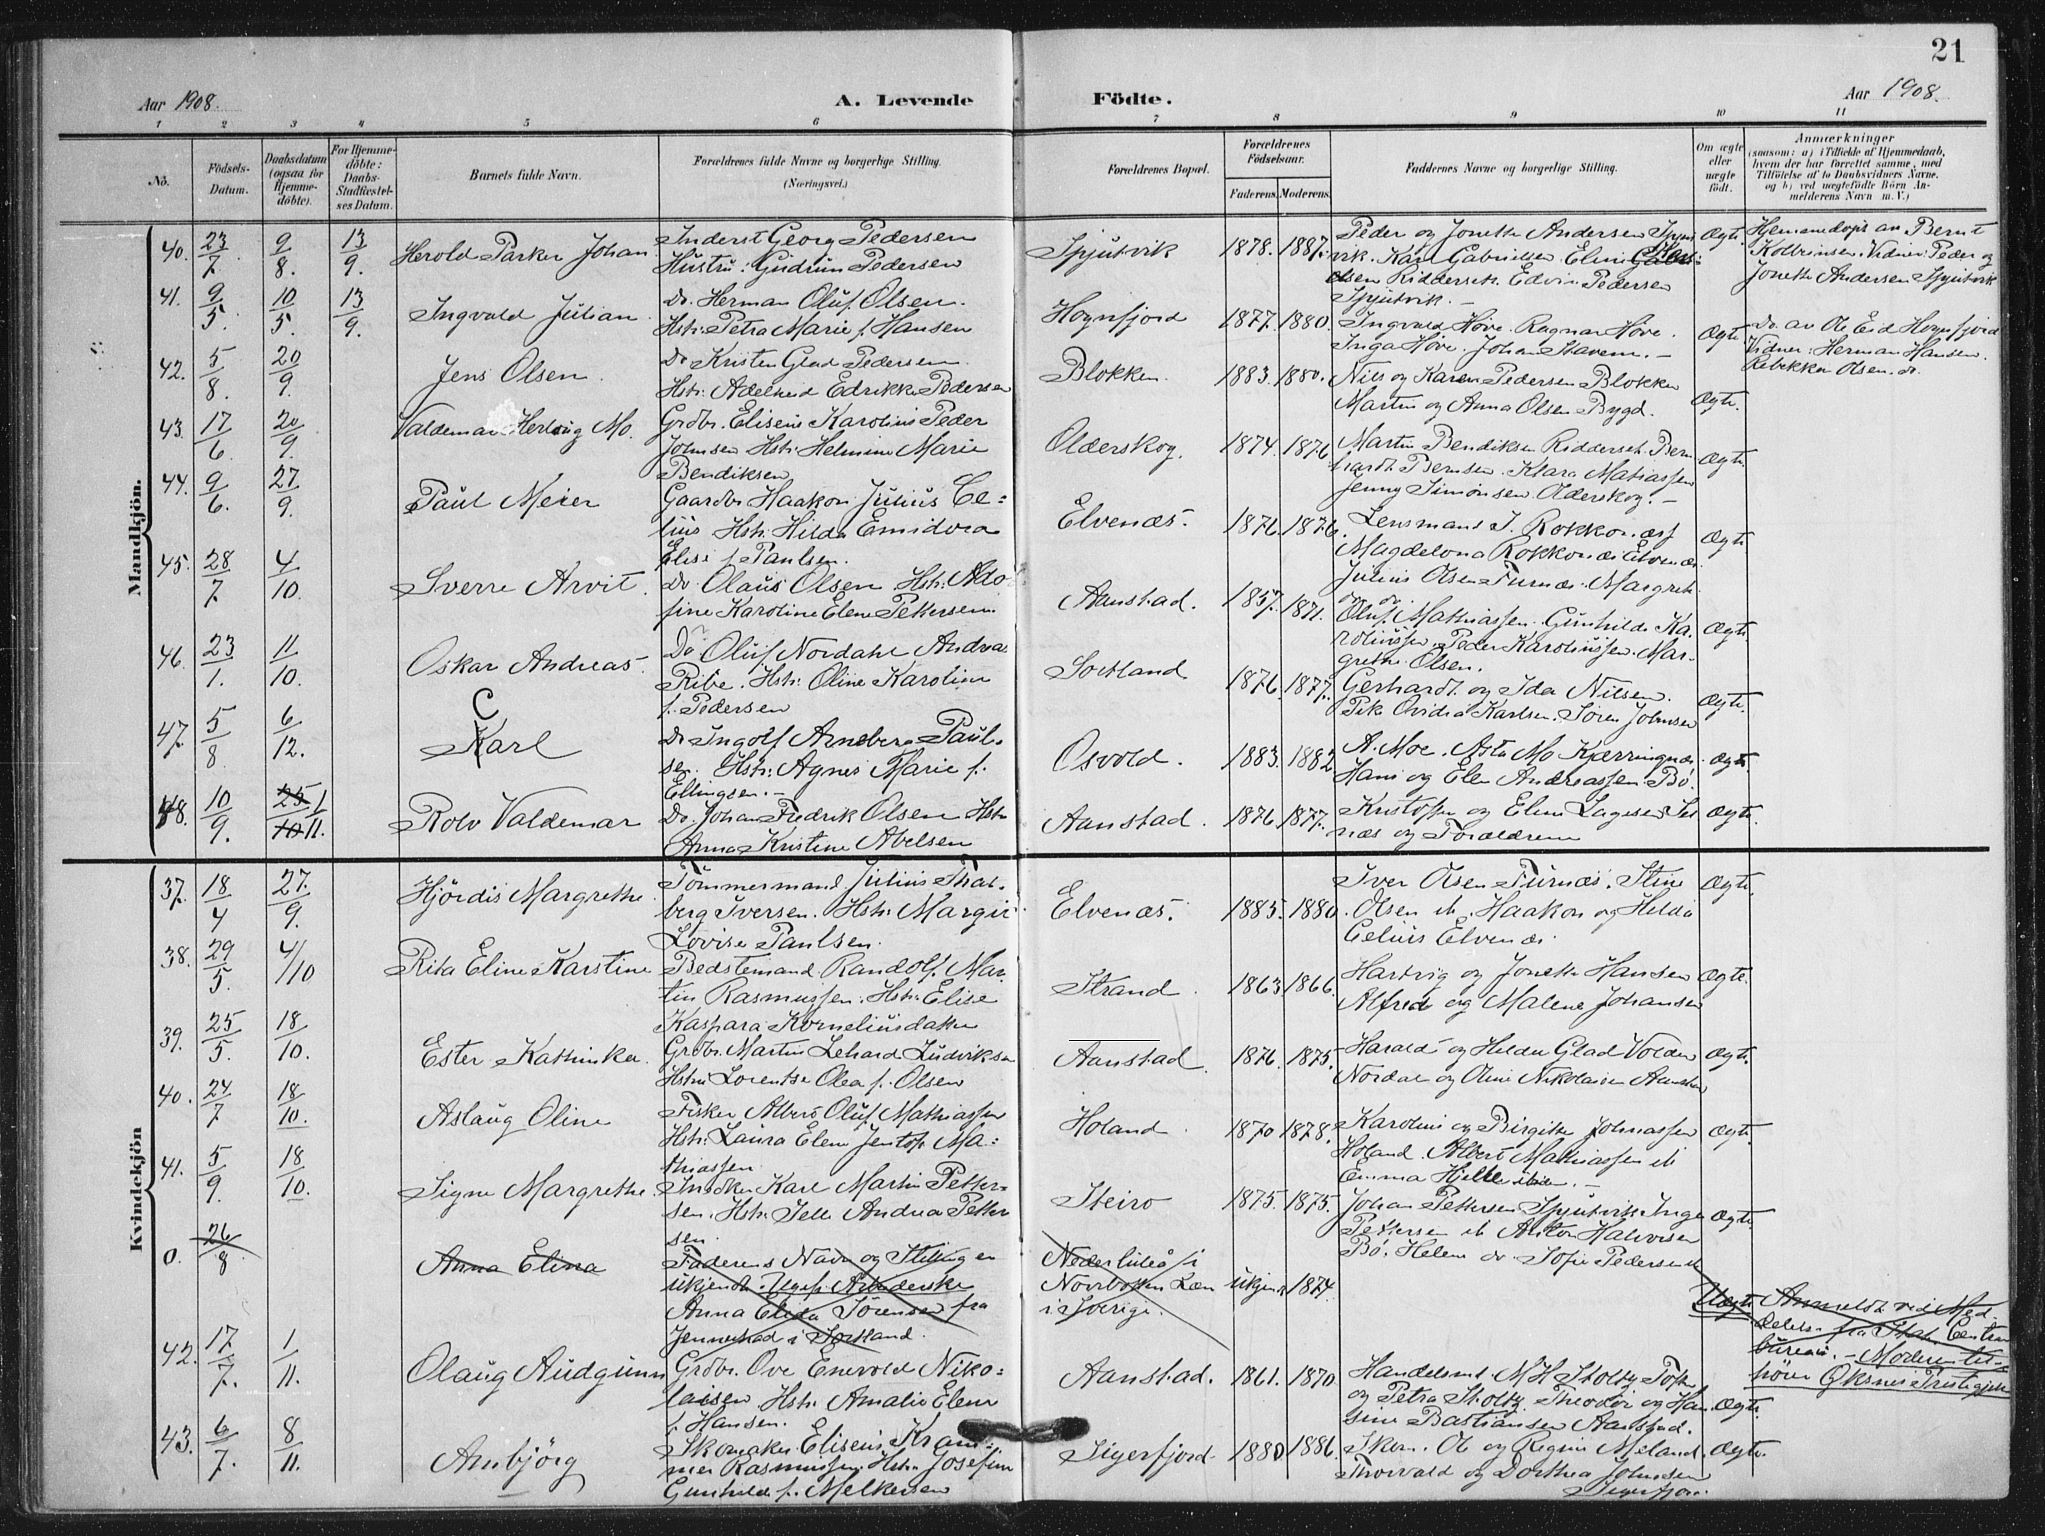 21
Aar 1908.
A. Levende
Födte.
Aar 1908.
1 2 3 4 5 6 7 8 9 10 11
No.
Födsels-
Datum.
Daabsdatum
(ogsaa for
Hjemme-
döbte).
For Hjemme-
döbte:
Daabs-
Stadfæstel-
ses Datum.
Barnets fulde Navn.
Forældrenes fulde Navne og borgerlige Stilling.
(Næringsvei.)
Forældrenes Bopæl.
Forældrenes
Födselsaar.
Faderens. Moderens.
Faddernes Navne og borgerlige Stilling.
Om ægte
eller
uægte
födt.
Anmærkninger
(saasom: a) i Tilfælde af Hjemmedaab,
hvem der har forrettet samme, med
Tilföielse af to Daabsvidners Navne.
og b) ved uægtefödte Börn An-
melderens Navn m. V.)
Mandkjön.
40. 23/7 9/8. 13/9. Herold Parker Johan
Inderst Georg Pedersen
Hustru: Gudrun Pedersen
Spjutvik 1878. 1887.
Peder og Jonette Andersen Spjut
vik. Karl Gabrielsen Elen
Riddersets Edvin Pedersen
Spjutvik. –
Ægte.
Hjemmedøpt av Bernt
Kolbeinsen. Vidner: Peder og
Jonette Andersen Spjutvik
41. 9/5. 10/5. 13/9. Ingvald Julian
Do. Herman Oluf Olsen.
Hstr: Petra Marie f. Hansen
Hognfjord 1877. 1880.
Ingvald Hove. Ragnar Hove.
Inga Hove. Johan Stavem. –
Ægte
Do. av Ole Eid Hognfjord
Vidner: Herman Hansen.
Rebekka Olsen. do.
42. 5/8. 20/9. Jens Olsen
Do Kristen Glad Pedersen
Hstr: Adelheid Edrikke Pedersen
Blokken. 1883. 1880.
Nils og Karen Pedersen Blokken
Martin og Anna Olsen Bygd.
Ægte.
43. 17/6 20/9. Valdemar Herlaug Mo.
Grdbr. Elisenius Karolius Peder
Johnsen Hstr: Helmine Marie
Bendiksen
Olderskog. 1874. 1876
Martin Bendiksen Ridderset. Bern
hardt Berntsen. Klara Matiassen
Jenny Simonsen Olderskog. –
Ægte.
44. 9/6. 27/9. Paul Meier
Gaardbr Haakon Julius Ce-
lius Hstr: Hilda Emidora
Elise f. Paulsen.
Elvenæs. 1876. 1876.
Lensmand J. Rokkonæs
Magdelona Rokkonæs Elvenæs
Julius Olsen Furnæs. Margreth
do. do.
Ægte
45. 28/7 4/10. Sverre Arvit.
Do. Olaus Olsen Hstr: Ado-
fine Karoline Elene Pettersen.
Aanstad. 1857. 1871.
Oluf Mathiassen. Gunhilde Ka-
roliussen Peder Karoliussen. Mar-
grethe Olsen.
Ægte
46. 23/1. 11/10. Oskar Andreas
Do Oluf Nordahl Andreas
Ribe. Hstr: Oline Karoline
f. Pedersen
Sortland 1876. 1877.
Gerhardt og Ida Nilsen.
Pet. Ovidia Karlsen. Søren Johnsen
Ægte.
47. 5/8 6/12. C Karl
Do Ingolf Arneberg Paul-
sen. Hstr: Agnes Marie f.
Ellingsen. –
Osvold. 1883. 1882
A. Moe. Asta Mo Kjærringnæs
Hans og Elen Andreassen Bö.
Ægte.
48. 10/9. 25/10 1/11. Rolv Valdemar
Do. Johan Fredrik Olsen Hstr
Anna Kristine Abelsen
Aanstad. 1876 1877.
Kristoffer og Elen Lagesen Sel
næs og Forældrene
Ægte.
Kvindekjön
37. 18/4 27/9. Hjördis Margrethe
Tømmermand Julius Thal-
berg Iversen. Hstr: Margit
Lovise Paulsen.
Elvenæs. 1885. 1880.
Iver Olsen Furnæs. Stine
Olsen ib. Haakon og Hilda
Celius Elvenæs.
Ægte.
38. 29/5. 4/10 Rita Eline Karstine
Bedstemand Randolf Mar
tin Rasmussen. Hstr: Elise
Kaspara Korneliusdatter
Strand. 1863 1866.
Hartvig og Jonette Hansen
Alfred og Malene Johansen
Ægte.
39. 25/5. 18/10. Ester Kathinka.
Grdbr. Martin Lehard Ludviksen
Hstru Lorentse Olea f. Olsen
Aanstad. 1876. 1875.
Harald og Hilda Glad Volden
Nordal og Oline Nikolaisen Aanstad
Ægte.
40. 24/7 18/10. Aslaug Oline
Fisker Albert Oluf Mathiassen
Hstr: Laura Elene Jentof. Ma-
thiassen
Holand. 1870 1878.
Karolius og Birgitte Johnassen
Holand. Albert Mathiassen ib
Emma Hjelle ibid. –
Ægte.
41. 5/9. 18/10. Signe Margrethe.
Snedker Karl Martin Petter-
sen. Hstr. Andrea Petter
sen.
Steiro 1875. 1875.
Johan Pettersen Spjutvik Inga
Pettersen ib Anton Halvorsen
Bö. Helene do. Sofie Pedersen ib
Ægte
0. 26/8 Anna Elina
Faderens Navn og Stilling er
ukjendt. Ugift Arbeiderske
Anna Elida Sørensen fra
Jennestad i Sortland.
Nederluleå i
Norrbotten Læn
i Sverige.
ukjendt 1874.
Uægte
Anmeldt ved Med
delelse fra Stat. Central
bureau. – Moderen til-
hører Øksnes Prestegjeld
42. 17/7. 1/11. Olaug Audgunn
Grdbr. Ove Enevold Niko-
laisen Hstr: Amalie Elene
f. Hansen.
Aanstad. 1861. 1870
Handelsmd. M H Stoltz Toft
og Petra Stoltz. Theodor og Han
sine Bastiansen Aanstad.
Ægte.
43. 6/7. 8/11. Anbjörg
Skomaker Elisenis Kram-
mer Rasmussen. Hstr: Josefine
Gunhilde f. Melkersen
Sigerfjord 1880. 1886.
Skom. Ole og Regine Meland.
Thorvald og Dorthea Johnsen
Sigerfjord.
Ægte.